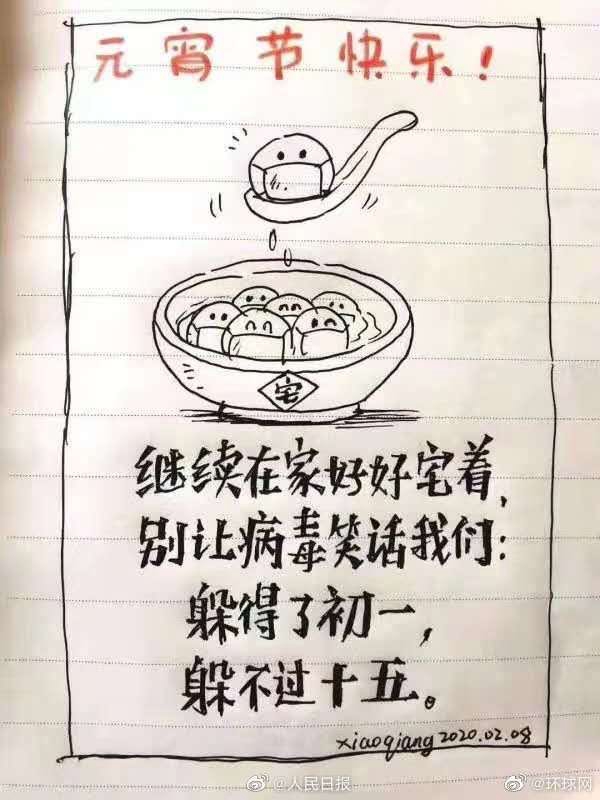 元宵节快乐！
宅
继续在家好好宅着，
别让病毒笑话我们：
躲得了初一，
躲不过十五。
xiaoqiang 2020.02.08
@人民日报
@环球网